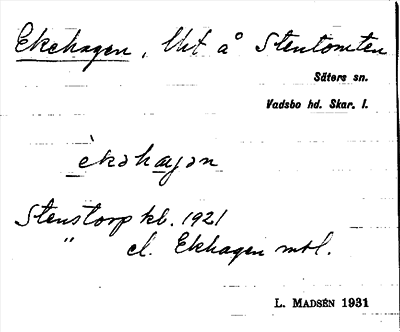 Ekehagen, Utt å Stentomten
Säters sn.
Vadsbo hd. Skar. l.
èkəhaɡən
Stenstorp kb. 1921
" el. Ekhagen mtl.
L. MADSÉN 1931